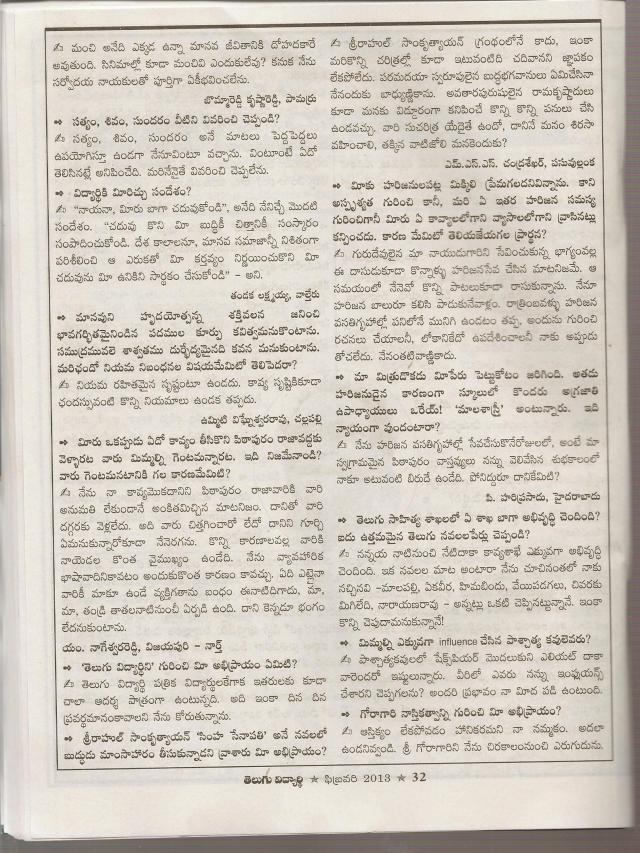 ✍ మంచి అనేది ఎక్కడ ఉన్నా మానవ జీవితానికి దోహదకారే
అవుతుంది. సినిమాల్లో కూడా మంచివి ఎందుకులేవు? కనుక నేను
సర్వోదయ నాయకులతో పూర్తిగా ఏకీభవించలేను.
బొమ్మారెడ్డి కృష్ణారెడ్డి, పామర్రు
➡ సత్యం, శివం, సుందరం వీటిని వివరించి చెప్పండి?
✍ సత్యం, శివం, సుందరం అనే మాటలు పెద్దపెద్దలు
ఉపయోగిస్తూ ఉండగా నేనూవింటూ వచ్చాను. వింటూంటే ఏదో
తెలిసినట్లే అనిపించేది. మరినేనైతే వివరించి చెప్పలేను.
➡ విద్యార్థికి మీరిచ్చు సందేశం?
✍ "నాయనా, మీరు బాగా చదువుకోండి", అనేది నేనిచ్చే మొదటి
సందేశం. "చదువు కొని మీ బుద్ధికీ చిత్తానికీ సంస్కారం
సంపాదించుకోండి. దేశ కాలాలనూ, మానవ సమాజాన్నీ నిశితంగా
పరిశీలించి ఆ ఎరుకతో మీ కర్తవ్యం నిర్ణయించుకొని మీ
చదువును మీ ఉనికిని సార్థకం చేసుకోండి" - అని.
తండక లక్ష్మయ్య, వాల్తేరు
➡ మానవుని హృదయోత్పన్న శక్తివలన జనించి
భావగర్భితమైనిండిన పదముల కూర్పు కవిత్వమనుకొంటాను.
సముద్రమువలె శాశ్వతము దుర్భేద్యమైనది కవన మనుకుంటాను.
మరిఛందో నియమ నిబంధనల విషయమేమిటో తెలిపెదరా?
✍ నియమ రహితమైన సృష్టంటూ ఉండదు. కావ్య సృష్టికికూడా
ఛందస్సువంటి కొన్ని నియమాలు ఉండక తప్పదు.
ఉమ్మిటి విఘ్నేశ్వరరావు, చల్లపల్లి
➡ మీరు ఒకప్పుడు ఏదో కావ్యం తీసికొని పిఠాపురం రాజావద్దకు
వెళ్ళారట వారు మిమ్మల్ని గెంటమన్నారట. ఇది నిజమేనాండి?
వారు గెంటమనటానికి గల కారణమేమిటి?
✍ నేను నా కావ్యమొకదానిని పిఠాపురం రాజావారికి వారి
అనుమతి లేకుండానే అంకితమిచ్చిన మాటనిజం. దానితో వారి
దగ్గరకు వెళ్లలేదు. అది వారు చిత్తగించారో లేదో దానిని గూర్చి
ఏమనుకున్నారోకూడా నేనెరగను. కొన్ని కారణాలవల్ల వారికి
నాయెడల కొంత వైముఖ్యం ఉండేది. నేను వ్యావహారిక
భాషావాదినికావటం అందుకుకొంత కారణం కావచ్చు. ఏది ఎట్లైనా
వారికీ మాకూ ఉండే వ్యక్తిగతాను బంధం ఈనాటిదిగాదు, మా,
మా, తండ్రి తాతలనాటినుంచీ ఏర్పడి ఉంది. దాని కెన్నడూ భంగం
లేదనుకుంటాను.
యం. నాగేశ్వరరెడ్డి, విజయపురి - నార్త్
➡ 'తెలుగు విద్యార్థిని' గురించి మీ అభిప్రాయం ఏమిటి?
✍ తెలుగు విద్యార్థి పత్రిక విద్యార్థులకేగాక ఇతరులకు కూడా
చాలా ఆదర్శ పాత్రంగా ఉంటున్నది. అది ఇంకా దిన దిన
ప్రవర్థమానంకావాలని నేను కోరుతున్నాను.
➡ శ్రీరాహుల్ సాంకృత్యాయన్ 'సింహ సేనాపతి' అనే నవలలో
బుద్ధుడు మాంసాహారం తీసుకున్నాడని వ్రాశారు మీ అభిప్రాయం?
✍ శ్రీరాహుల్ సాంకృత్యాయన్ గ్రంథంలోనే కాదు, ఇంకా
మరికొన్ని చరిత్రల్లో కూడా ఇటువంటిది చదివానని జ్ఞాపకం
లేకపోలేదు. పరమదయా స్వరూపులైన బుద్ధభగవానులు ఏమిచేసినా
నేనందుకు బాధ్యుణ్ణికాను. అవతారపురుషులైన రామకృష్ణాదులు
కూడా మనకు విడ్డూరంగా కనిపించే కొన్ని కొన్ని పనులు చేసి
ఉండవచ్చు. వారి సుచరిత్ర యేదైతే ఉందో, దానినే మనం శిరసా
వహించాలి, తక్కిన వాటిజోలి మనకెందుకు?
ఎమ్.ఎస్.ఎస్. చంద్రశేఖర్, పసుపుల్లంక
➡ మీకు హరిజనులపట్ల మిక్కిలి ప్రేమగలదనివిన్నాను. కాని
అస్పృశ్యత గురించి కానీ, మరి ఏ ఇతర హరిజన సమస్య
గురించిగానీ మీరు ఏ కావ్యాలలోగాని వ్యాసాలలోగాని వ్రాసినట్లు
కన్పించదు. కారణ మేమిటో తెలియజేయగల ప్రార్థన?
✍ గురుదేవులైన మా నాయుడుగారిని సేవించుకున్న భాగ్యంవల్ల
ఈ దాసుడుకూడా కొన్నాళ్ళు హరిజనసేవ చేసిన మాటనిజమే. ఆ
సమయంలో నేనెవో కొన్ని పాటలుకూడా రాసుకున్నాను. నేనూ
హరిజన బాలురూ కలిసి పాడుకునేవాళ్లం. రాత్రింబవళ్ళు హరిజన
వసతిగృహాల్లో పనిలోనే మునిగి ఉండటం తప్ప, అందును గురించి
రచనలు చేయాలనీ, లోకానికేదో ఉపదేశించాలనీ నాకు అప్పుడు
తోచలేదు. నేనంతటివాణ్ణికాదు.
➡ మా మిత్రుడొకడు మీపేరు పెట్టుకోటం జరిగింది. అతడు
హరిజనుడైన కారణంగా స్కూలులో కొందరు అగ్రజాతి
ఉపాధ్యాయులు ఒరేయ్! 'మాలశాస్త్రీ' అంటున్నారు. ఇది
న్యాయంగా వుందంటారా?
✍ నేను హరిజన వసతిగృహాల్లో సేవచేసుకొనేరోజులలో, అంటే మా
స్వగ్రామమైన పిఠాపురం వాస్తవ్యులు నన్ను వెలివేసిన శుభకాలంలో
నాకూ అటువంటి బిరుదే ఉండేది. పోనిద్దురూ దానికేమిటి?
పి. హరిప్రసాదు, హైదరాబాదు
➡ తెలుగు సాహిత్య శాఖలలో ఏ శాఖ బాగా అభివృద్ధి చెందింది?
ఐదు ఉత్తమమైన తెలుగు నవలలపేర్లు చెప్పండి?
✍ నన్నయ నాటినుంచి నేటిదాకా కావ్యశాఖే ఎక్కువగా అభివృద్ధి
చెందింది. ఇక నవలల మాట అంటారా నేను చూచినంతలో నాకు
నచ్చినవి -మాలపల్లి, ఏకవీర, హిమబిందు, వేయిపడగలు, చివరకు
మిగిలేది, నారాయణరావు - అన్నట్లు ఒకటి చెప్పినట్టున్నానే. ఇంకా
కొన్ని చెపుదామనుకున్నానే!
➡ మిమ్మల్ని ఎక్కువగా influence చేసిన పాశ్చాత్య కవులెవరు?
✍ పాశ్చాత్యకవులలో షేక్స్‌పియర్ మొదలుకుని ఎలియట్ దాకా
వారెందరో ఇష్టులున్నారు. వీరిలో ఎవరు నన్ను ఇంఫ్లుయన్స్
చేశారని చెప్పగలను? అందరి ప్రభావం నా మీద పడే ఉంటుంది.
➡ గోరాగారి నాస్తికత్వాన్ని గురించి మీ అభిప్రాయం?
✍ ఆస్తిక్యం లేకపోవడం హానికరమని నా నమ్మకం. అదలా
ఉండనివ్వండి. శ్రీ గోరాగారిని నేను చిరకాలంనుంచి ఎరుగుదును.
తెలుగు విద్యార్థి ★ ఫిబ్రవరి 2013 ★ 32